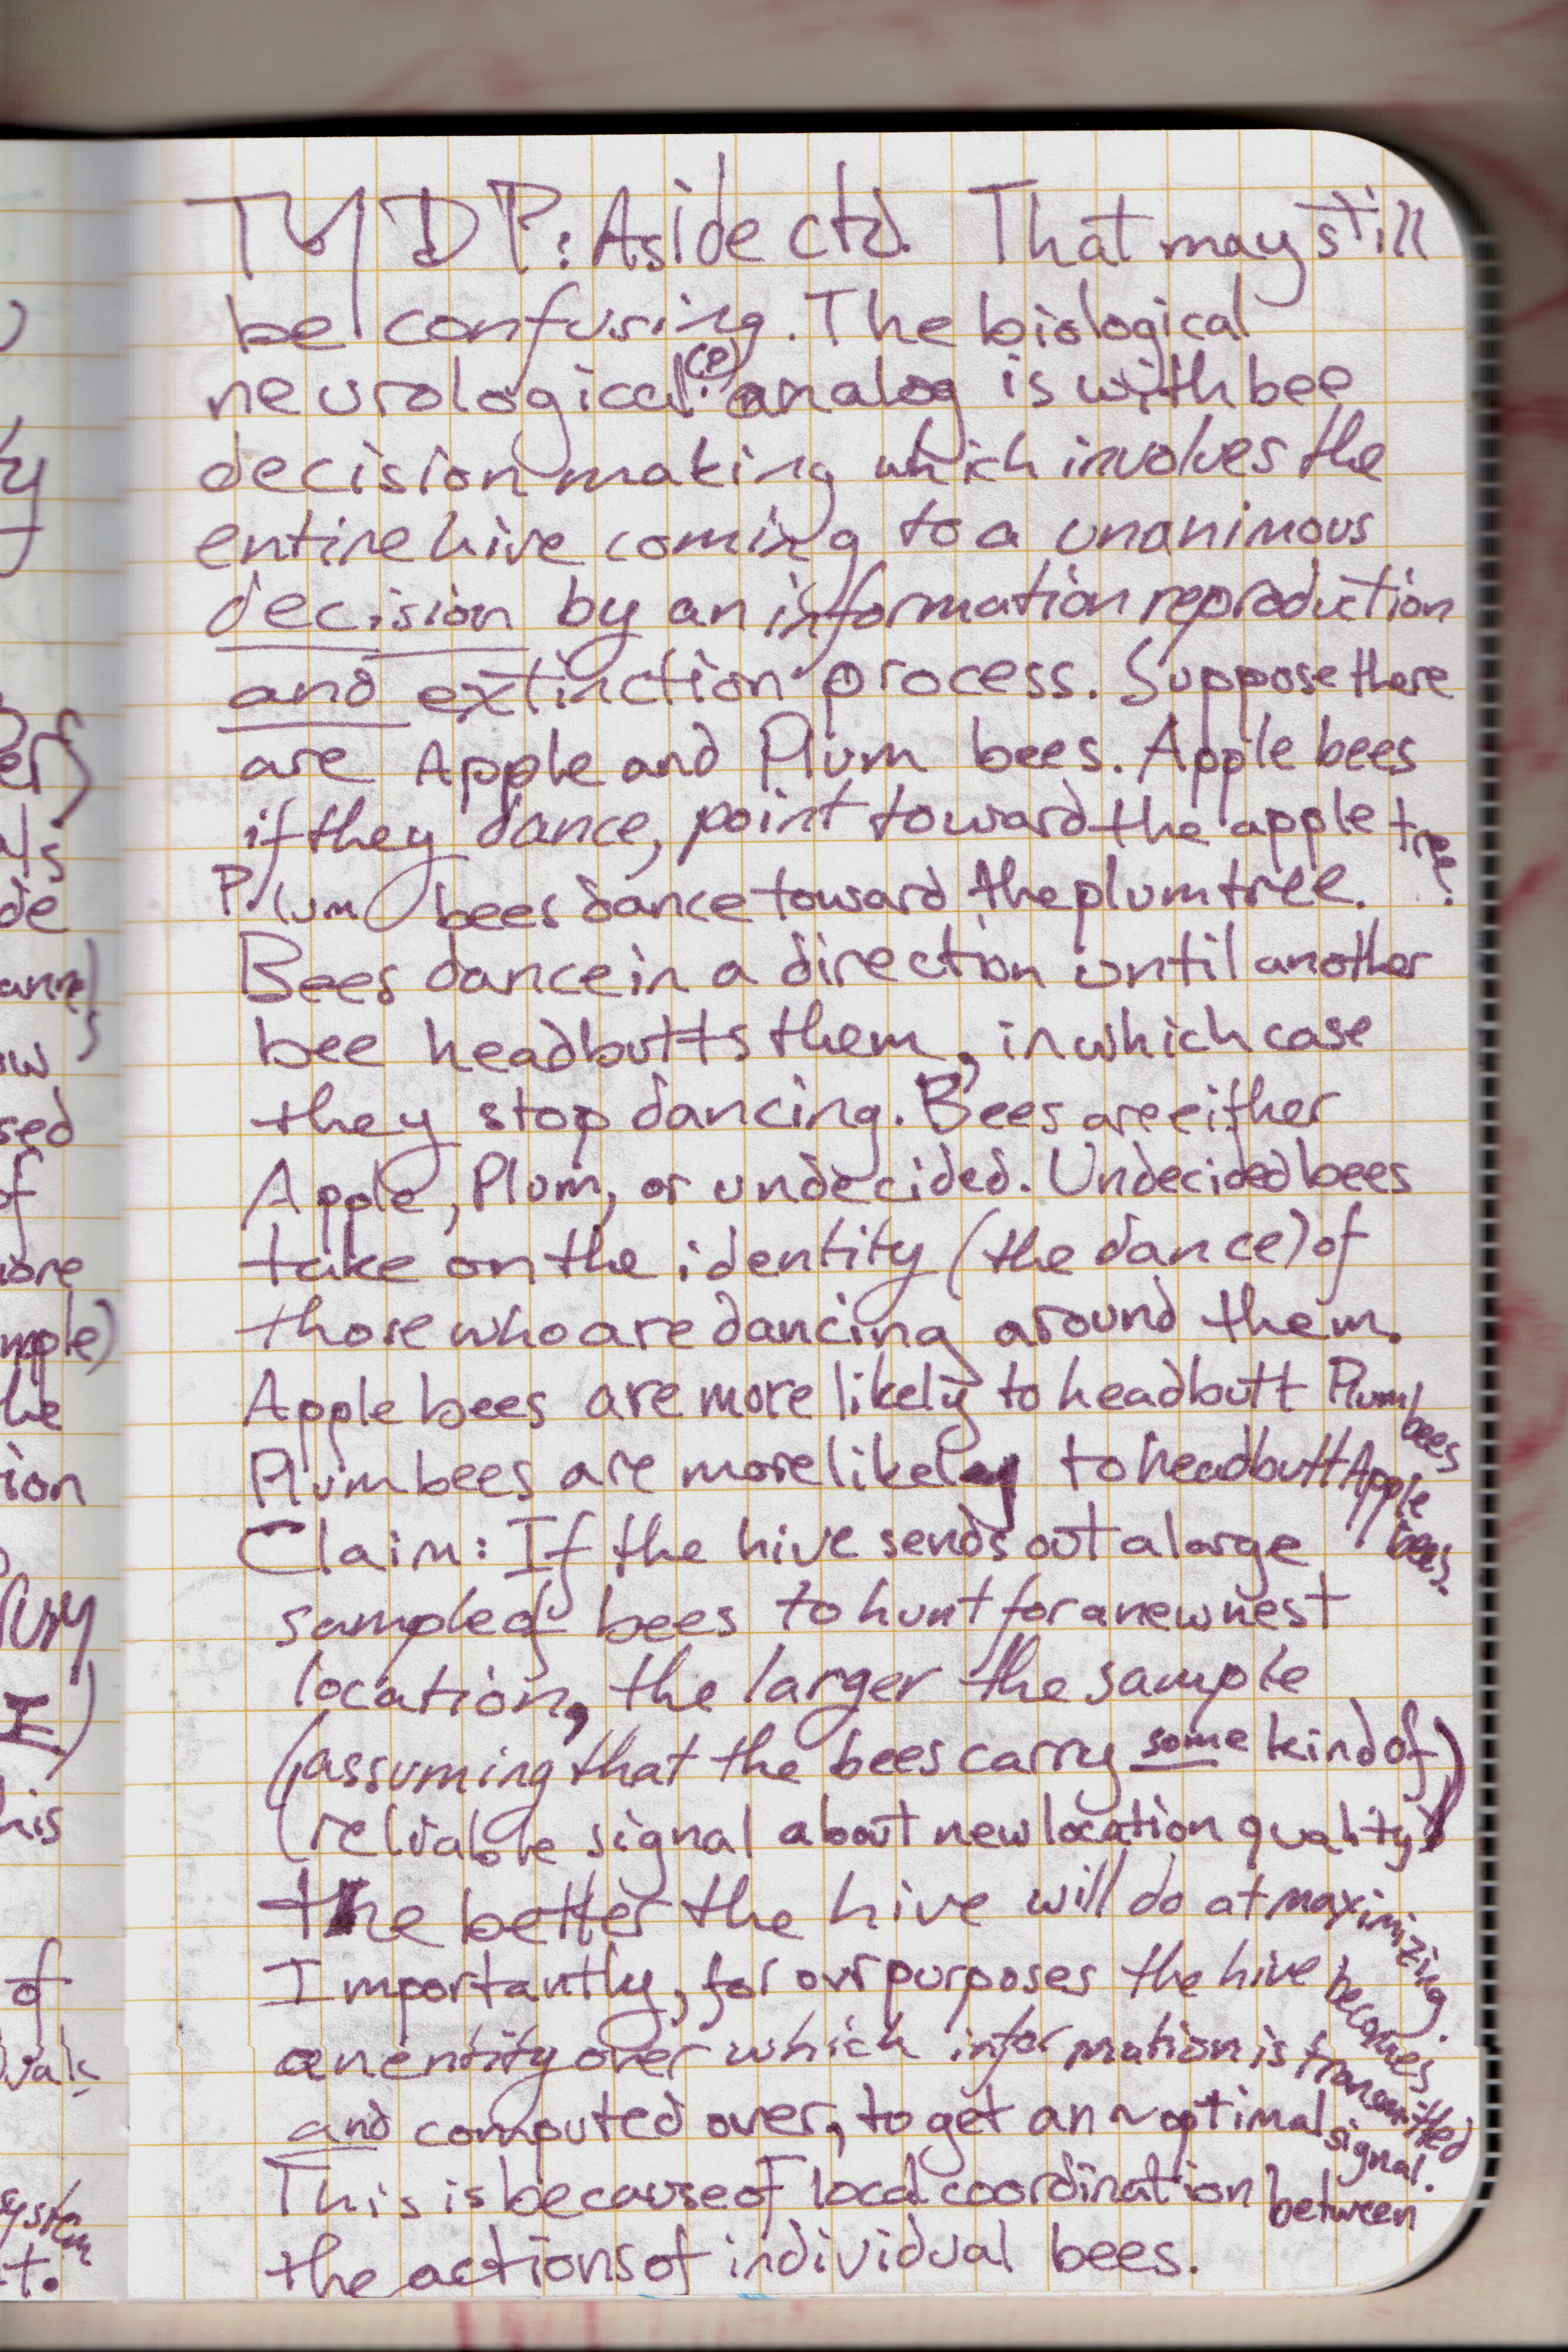 TYDP: Aside ctd. That may still
be confusing. The biological
neurological(?) analog is with bee
decision making which involves the
entire hive coming to a unanimous
decision by an information reproduction
and extinction process. Suppose there
are Apple and Plum bees. Apple bees
if they dance, point toward the apple tree.
Plum bees dance toward the plum tree.
Bees dance in a direction until another
bee headbutts them, in which case
they stop dancing. Bees are either
Apple, Plum, or undecided. Undecided bees
take on the identity (the dance) of
those who are dancing around them.
Apple bees are more likely to headbutt Plum bees
Plum bees are more likely to headbutt Apple bees.
Claim: If the hive sends out a large
sample of bees to hunt for a new nest
location, the larger the sample
(assuming that the bees carry some kind of
reliable signal about new location quality)
the better the hive will do at maximizing.
Importantly, for our purposes the hive becomes
an entity over which information is transmitted
and computed over, to get an ~optimal signal.
This is because of local coordination between
the actions of individual bees.